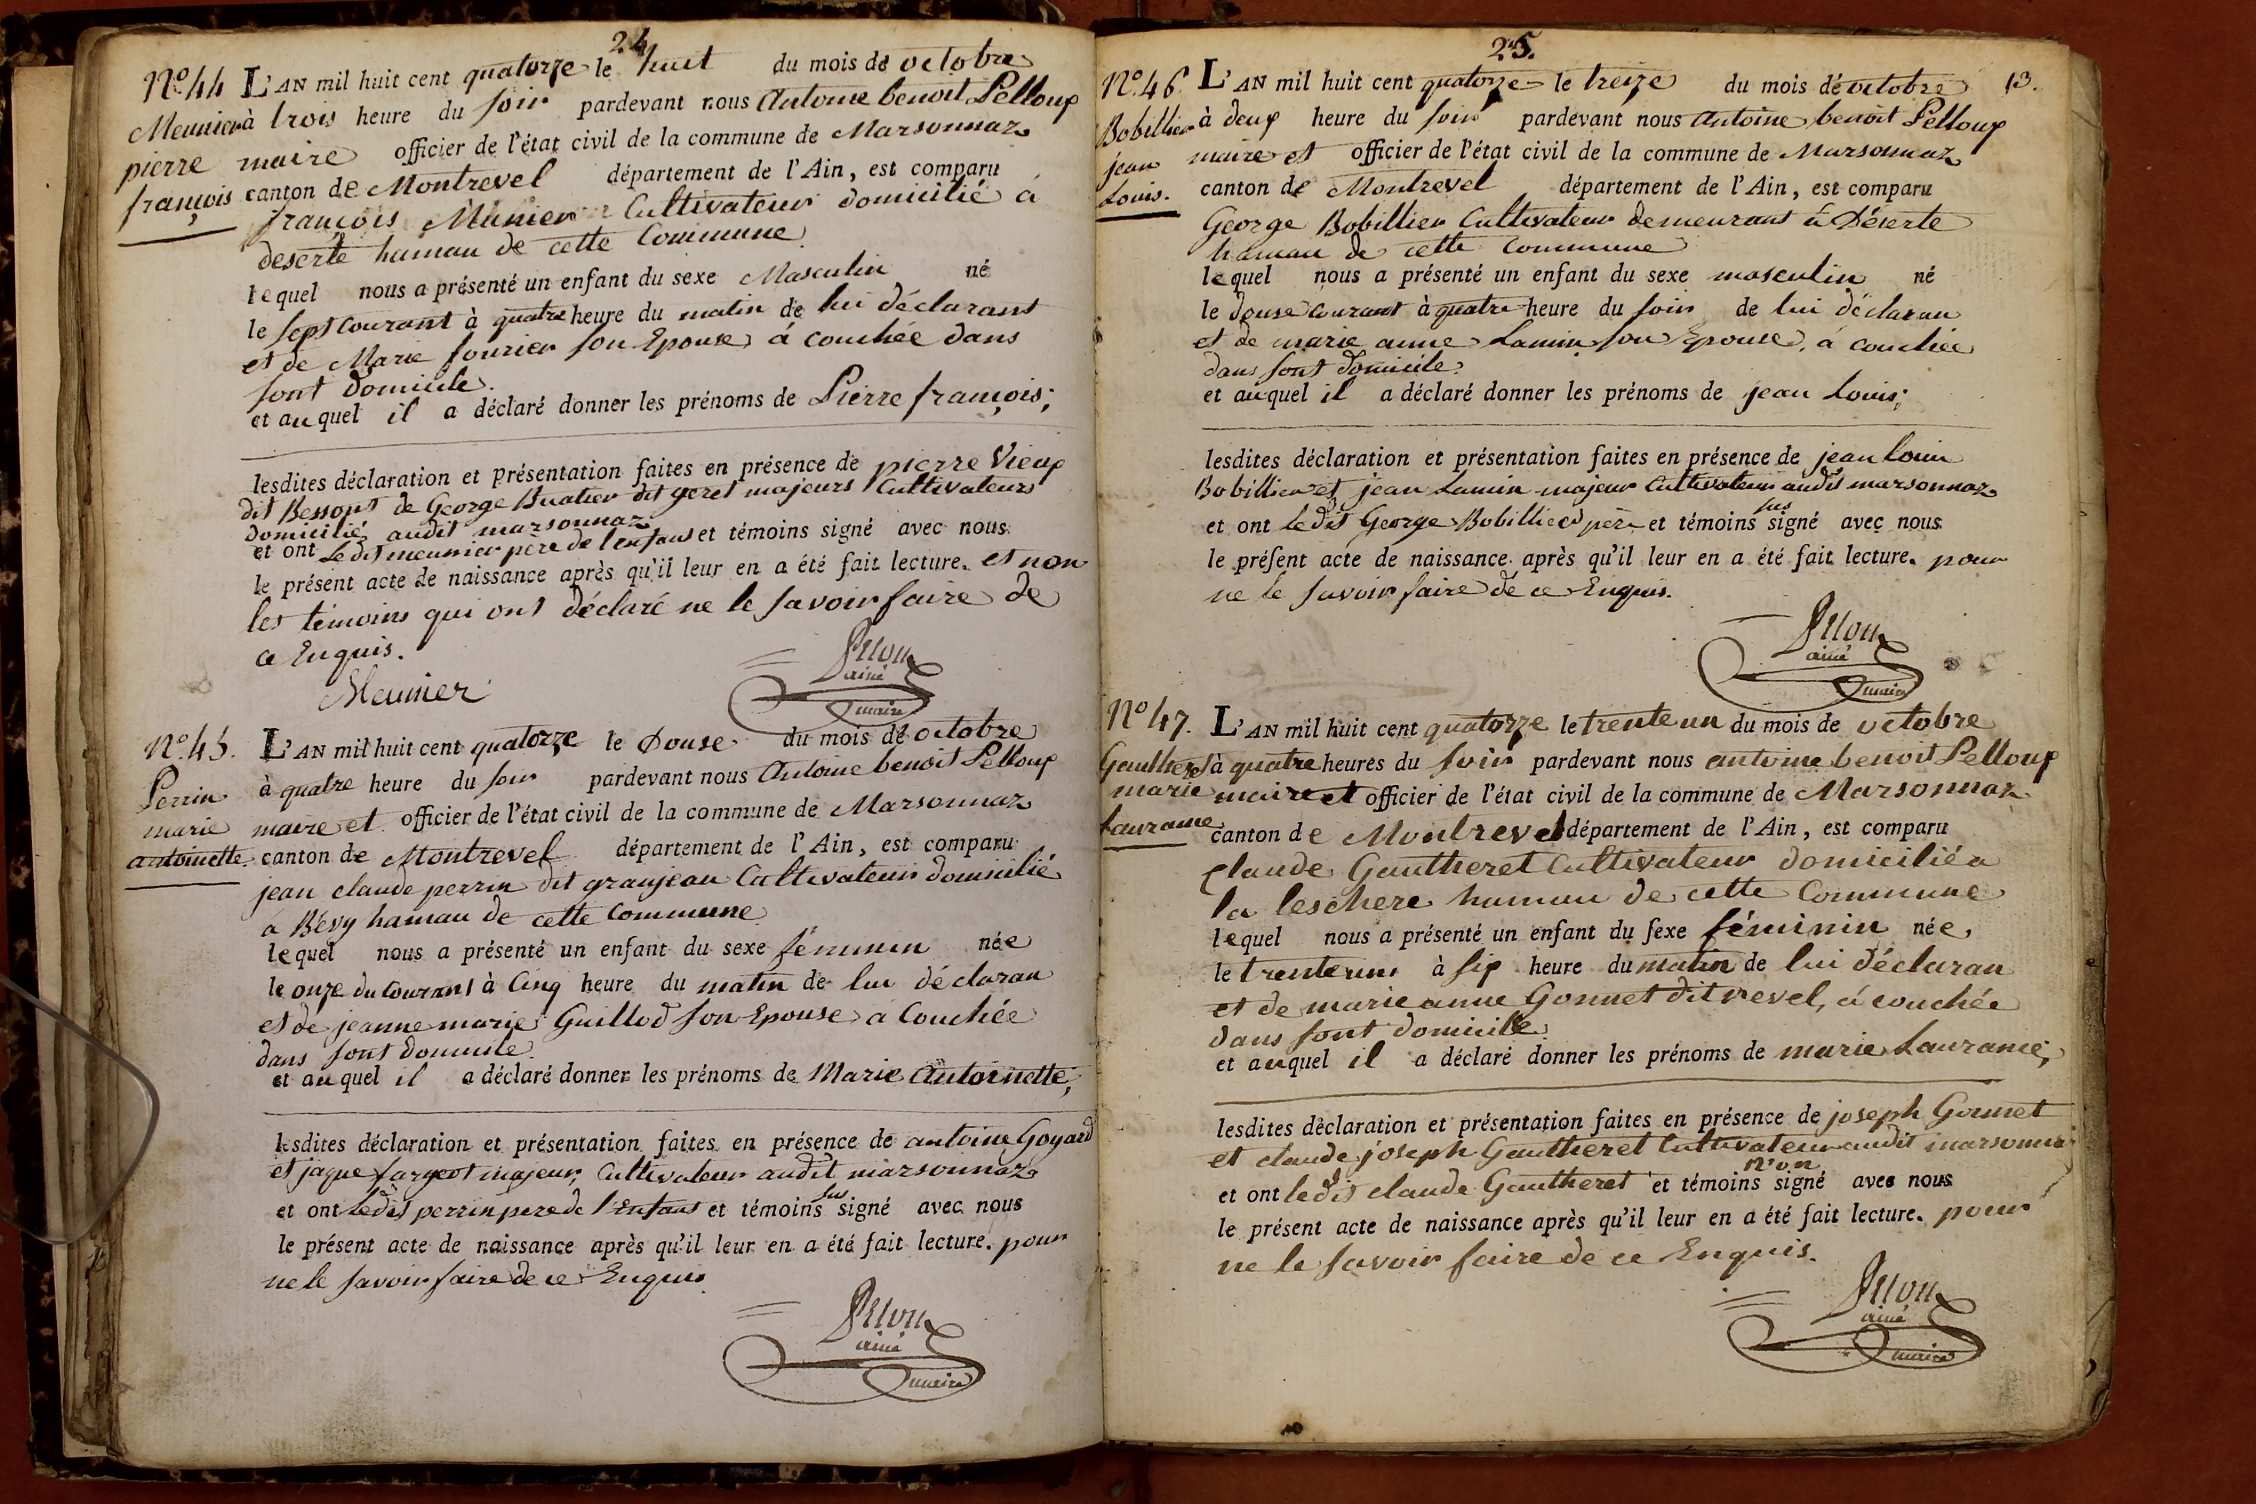 24
N.º 44 L'AN mil huit cent quatorze le huit du mois de octobre
Meunier à trois heure du soir pardevant nous Antoine benoit Pelloux
pierre maire officier de l'état civil de la commune de Marsonnaz
françois canton de Montrevel département de l'Ain, est comparu
françois Munier Cultivateur domicilié à
deserte hamau de cette Commune
lequel nous a présenté un enfant du sexe Masculin né
le sept Courant à quatre heure du matin de lui déclarant
et de Marie fourier son Epouse, á couchée dans
sont domicile.
et auquel il a déclaré donner les prénoms de Pierre françois;
lesdites déclaration et présentation faites en présence de pierre Vieux
dit Bessont de George Buatier dit geret majeurs Cultivateurs
domicilié audit marsonnaz
et ont Le dit meunier père de l'enfant et témoins signé avec nous
le présent acte de naissance après qu'il leur en a été fait lecture. et non
les témoins qui ont déclaré ne le savoir faire de
ce Enquis.
Meunier
aîné
maire
N.º 45. L'AN mil huit cent quatorze le Douse du mois de octobre
Perrin à quatre heure du soir pardevant nous Antoine benoit Pelloux
marie maire et officier de l'état civil de la commune de Marsonnaz
antoinette. canton de Montrevel département de l'Ain, est comparu
jean claude perrin dit granjean Cultivateur domicilié
á Bévy hamau de cette Commune
lequel nous a présenté un enfant du sexe féminin née
le onze du Courant à Cinq heure du matin de lui déclaran
et de jeanne marie Guillod son Epouse á Couchée
dans sont domicile
et auquel il a déclaré donner les prénoms de Marie Antoinette;
lesdites déclaration et présentation faites en présence de antoine Goyard
et jaque fargeot majeur, Cultivateur audit marsonnaz
nus
et ont Le dit perrin père de l'Enfant et témoins signé avec nous
le présent acte de naissance après qu'il leur en a été fait lecture. pour
ne le savoir faire de ce Enquis.
aîné
maire
25.
13.
N.º 46. L'AN mil huit cent quatorze le treize du mois de octobre
Bobillier à deux heure du soir pardevant nous Antoine benoit Pelloux
jean maire et officier de l'état civil de la commune de Marsonnaz
Louis. canton de Montrevel département de l'Ain, est comparu
George Bobillier Cultivateur demeurant á Déserte
hamau de cette Commune
lequel nous a présenté un enfant du sexe masculin né
le douse Courant à quatre heure du soir de lui déclaran
et de marie anne Lamin son Epouse, á couchée
dans sont domicile.
et auquel il a déclaré donner les prénoms de jean Louis;
lesdites déclaration et présentation faites en présence de jean Louis
Bobillier et jean Lamin majeur Cultivateur audit marsonnaz
nus
et ont le dit George Bobillier père et témoins signé avec nous
le présent acte de naissance après qu'il leur en a été fait lecture. pour
ne le savoir faire de ce Enquis.
aîné
maire
N.º 47. L'AN mil huit cent quatorze le trente un du mois de octobre
Gautheret à quatre heures du soir pardevant nous antoine benoit Pelloux
marie maire et officier de l'état civil de la commune de Marsonnaz
Lauranne canton de Montrevel département de l'Ain, est comparu
Claude Gautheret Cultivateur domicilié a
la leschere hamau de cette Commune
lequel nous a présenté un enfant du sexe féminin née,
le trente un à six heure du matin de lui déclaran
et de marie anne Gonnet dit revel, á couchée
dans sont domicile
et auquel il a déclaré donner les prénoms de marie Lauranne;
lesdites déclaration et présentation faites en présence de joseph Gonnet
et claude joseph Gautheret Cultivateur audit marsonnaz
non
et ont le dit claude Gautheret et témoins signé avec nous
le présent acte de naissance après qu'il leur en a été fait lecture. pour
ne le savoir faire de ce Enquis.
aîné
maire